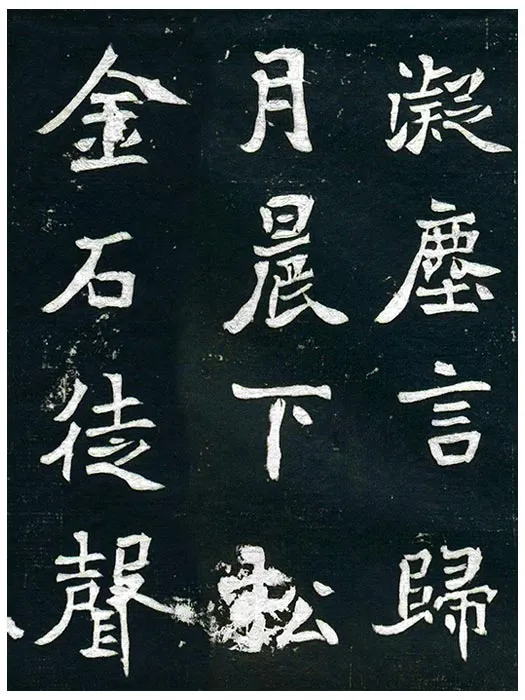 凝塵言歸
月晨下松
金石徒聲